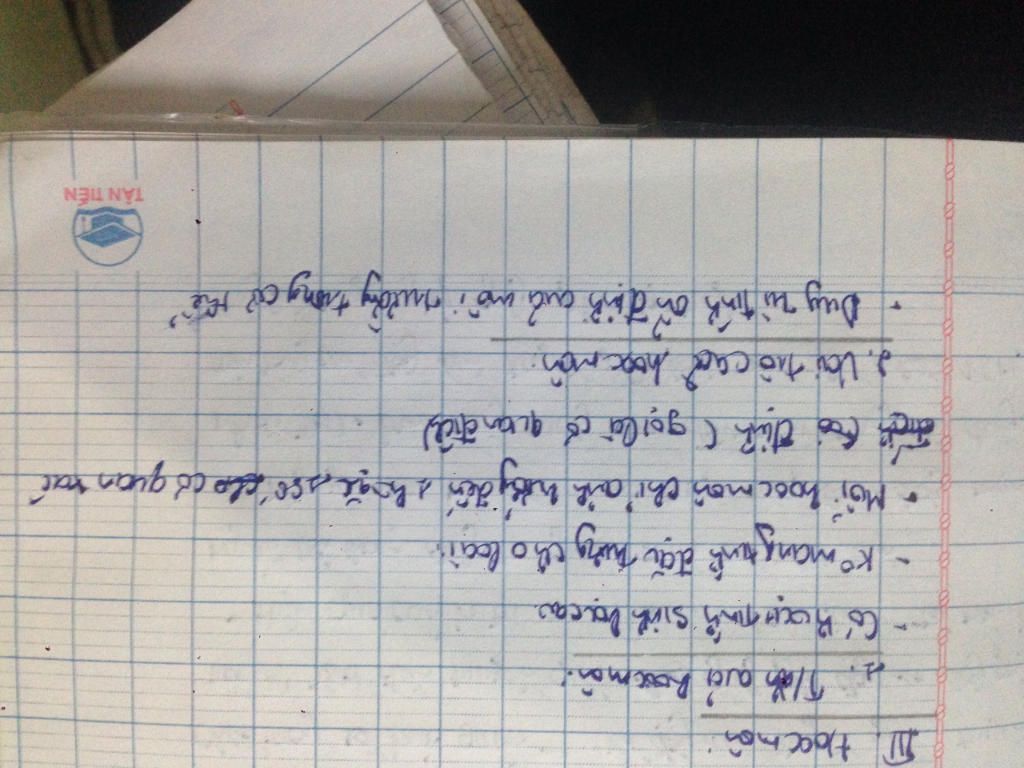 III. Hoocmôn.
1. T/c của hoocmôn:
- Có hoạt tính sinh học cao
- Ko mang tính đặc trưng cho loài.
- Mỗi hoocmôn chỉ ảnh hưởng đến 1 hoặc 1 số cơ quan xác
định (gọi là cơ quan đích)
2. Vai trò của hoocmôn.
- Duy trì tính ổn định của môi trường trong cơ thể
TÂN TIẾN